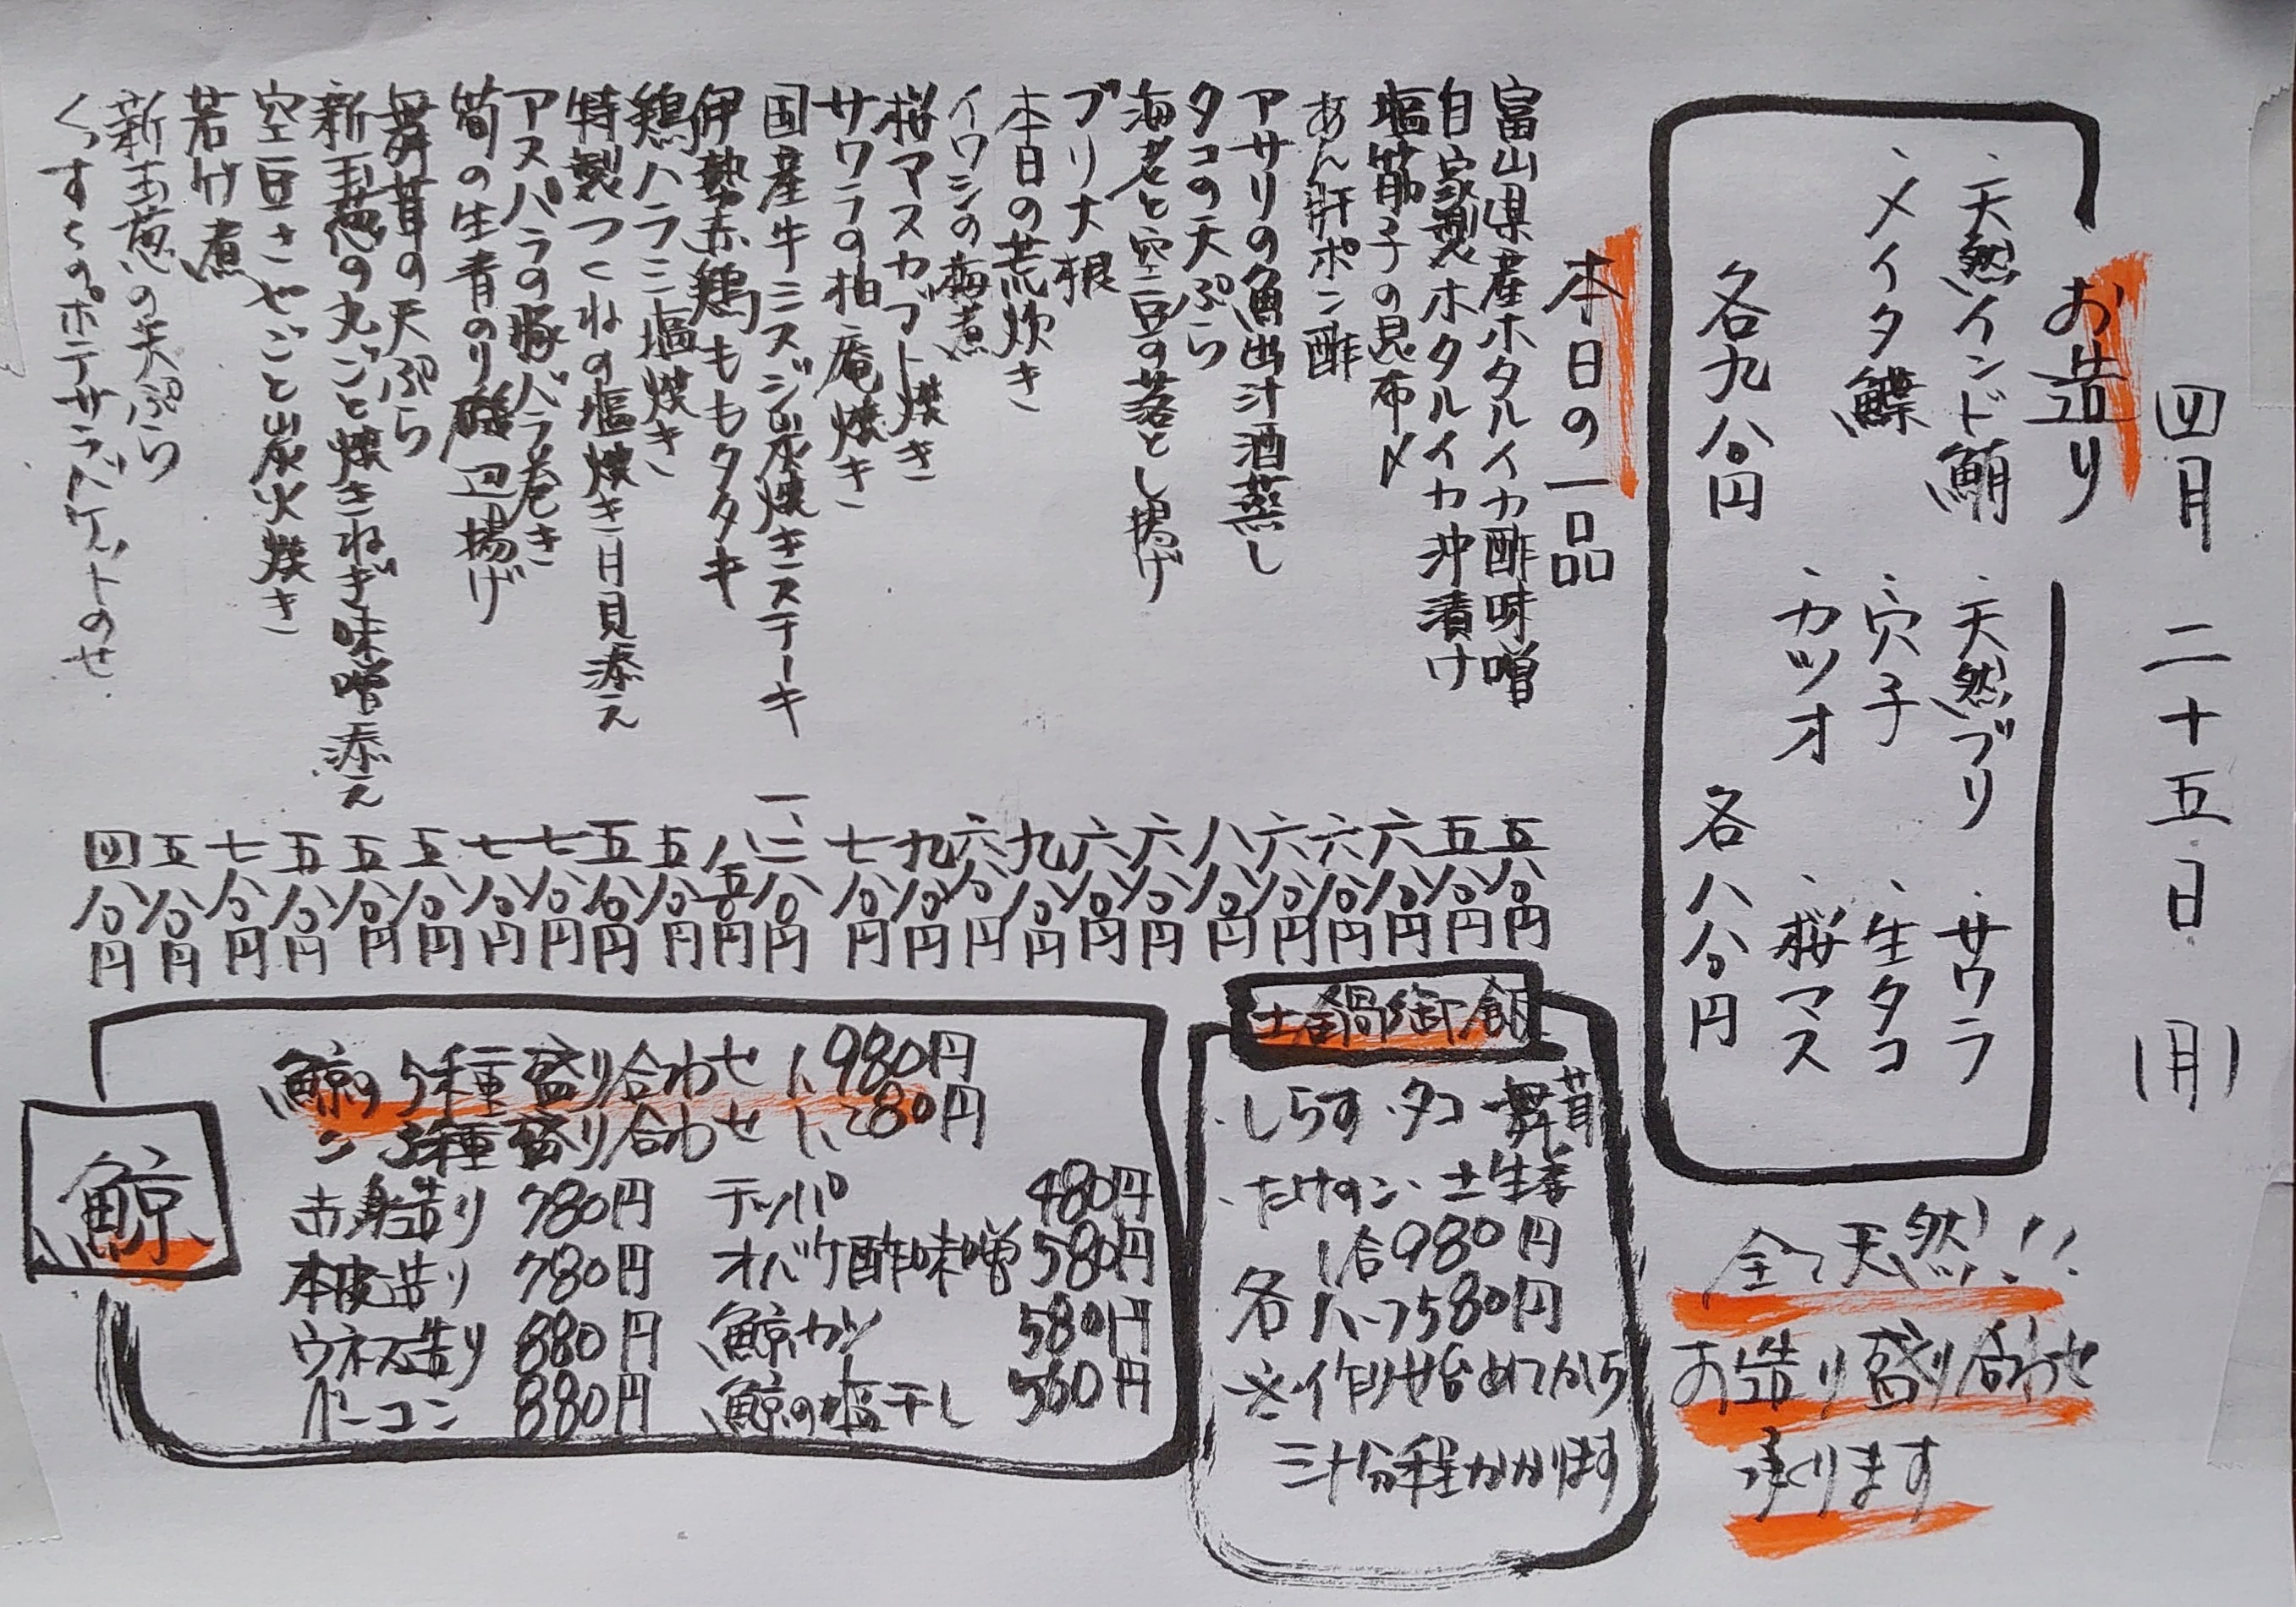 四月二十五日(月)
お造り
・天然インド鮪
・メイタ鰈
各九八〇円
・天然ブリ
・穴子
・カツオ
・サワラ
・生タコ
・桜マス
各八八〇円
全て天然!!
お造り盛り合わせ
承ります
本日の一品
富山県産ホタルイカ酢味噌 五八〇円
自家製ホタルイカ沖漬け 五八〇円
塩筋子の昆布〆 六八〇円
あん肝ポン酢 六八〇円
アサリの魚出汁酒蒸し 六八〇円
タコの天ぷら 八八〇円
海老と空豆の落とし揚げ 六八〇円
ブリ大根 六八〇円
本日の荒炊き 九八〇円
イワシの梅煮 六八〇円
桜マスカブト焼き 九八〇円
サワラの柚庵焼き 七八〇円
国産牛ミスジ炭焼きステーキ 一、二八〇円
伊勢赤鶏もも タタキ 八五〇円
鶏ハラミ塩焼き 五八〇円
特製つくねの塩焼き月見添え 五八〇円
アスパラの豚バラ巻き 七八〇円
筍の生青のり磯辺揚げ 七八〇円
舞茸の天ぷら 五八〇円
新玉葱の丸ごと焼きねぎ味噌添え 五八〇円
空豆さやごと炭火焼き 五八〇円
若竹煮 七八〇円
新玉葱の天ぷら 五八〇円
くんすものポテサラバケットのせ 四八〇円
土鍋御飯
・しらす・タコ・舞茸
・たけのこ・土生姜
各 1合980円
ハーフ580円
※作り始めてから
三十分程かかります
鯨
鯨の5種盛り合わせ 1,980円
〃 3種盛り合わせ 1,280円
赤身造り 780円
本皮造り 780円
ウネス造り 880円
ベーコン 880円
テッパ 480円
オバケ酢味噌 580円
鯨カツ 580円
鯨の塩干し 560円